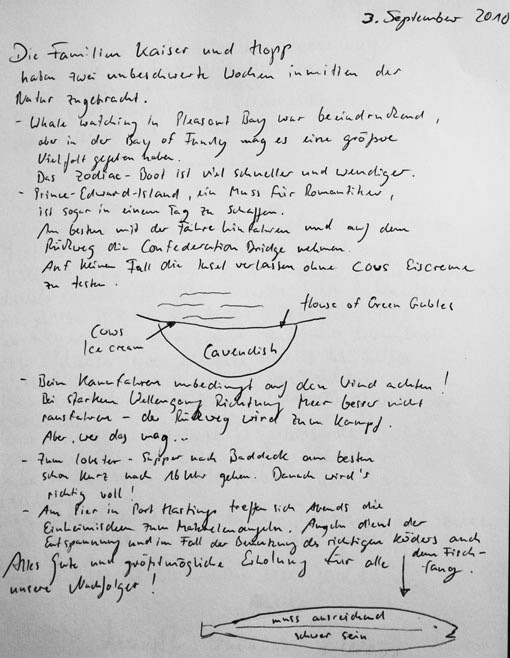 3. September 2010
Die Familien Kaiser und Hopp
haben zwei unbeschwerte Wochen inmitten der
Natur zugebracht.
- Whale watching in Pleasant Bay war beeindruckend,
aber in der Bay of Fundy mag es eine größere
Vielfalt gegeben haben.
Das Zodiac-Boot ist viel schneller und wendiger.
- Prince-Edward-Island, ein Muss für Romantiker,
ist sogar in einem Tag zu schaffen.
Am besten mit der Fähre hinfahren und auf dem
Rückweg die Confederation Bridge nehmen.
Auf keinen Fall die Insel verlassen ohne COWS Eiscreme
zu testen.
House of Green Gables
Cows
Ice cream
Cavendish
- Beim Kanufahren unbedingt auf den Wind achten!
Bei starkem Wellengang Richtung Meer besser nicht
rausfahren - der Rückweg wird zum Kampf.
Aber, wer das mag...
- Zum Lobster-Supper nach Baddeck am besten
schon kurz nach 16 Uhr gehen. Danach wird's
richtig voll!
- Am Pier in Port Hastings treffen sich Abends die
Einheimischen zum Makrelenangeln. Angeln dient der
Entspannung und im Fall der Benutzung des richtigen Köders auch
dem Fisch-
fang.
Alles Gute und größtmögliche Erholung für alle
unsere Nachfolger!
muss ausreichend
schwer sein